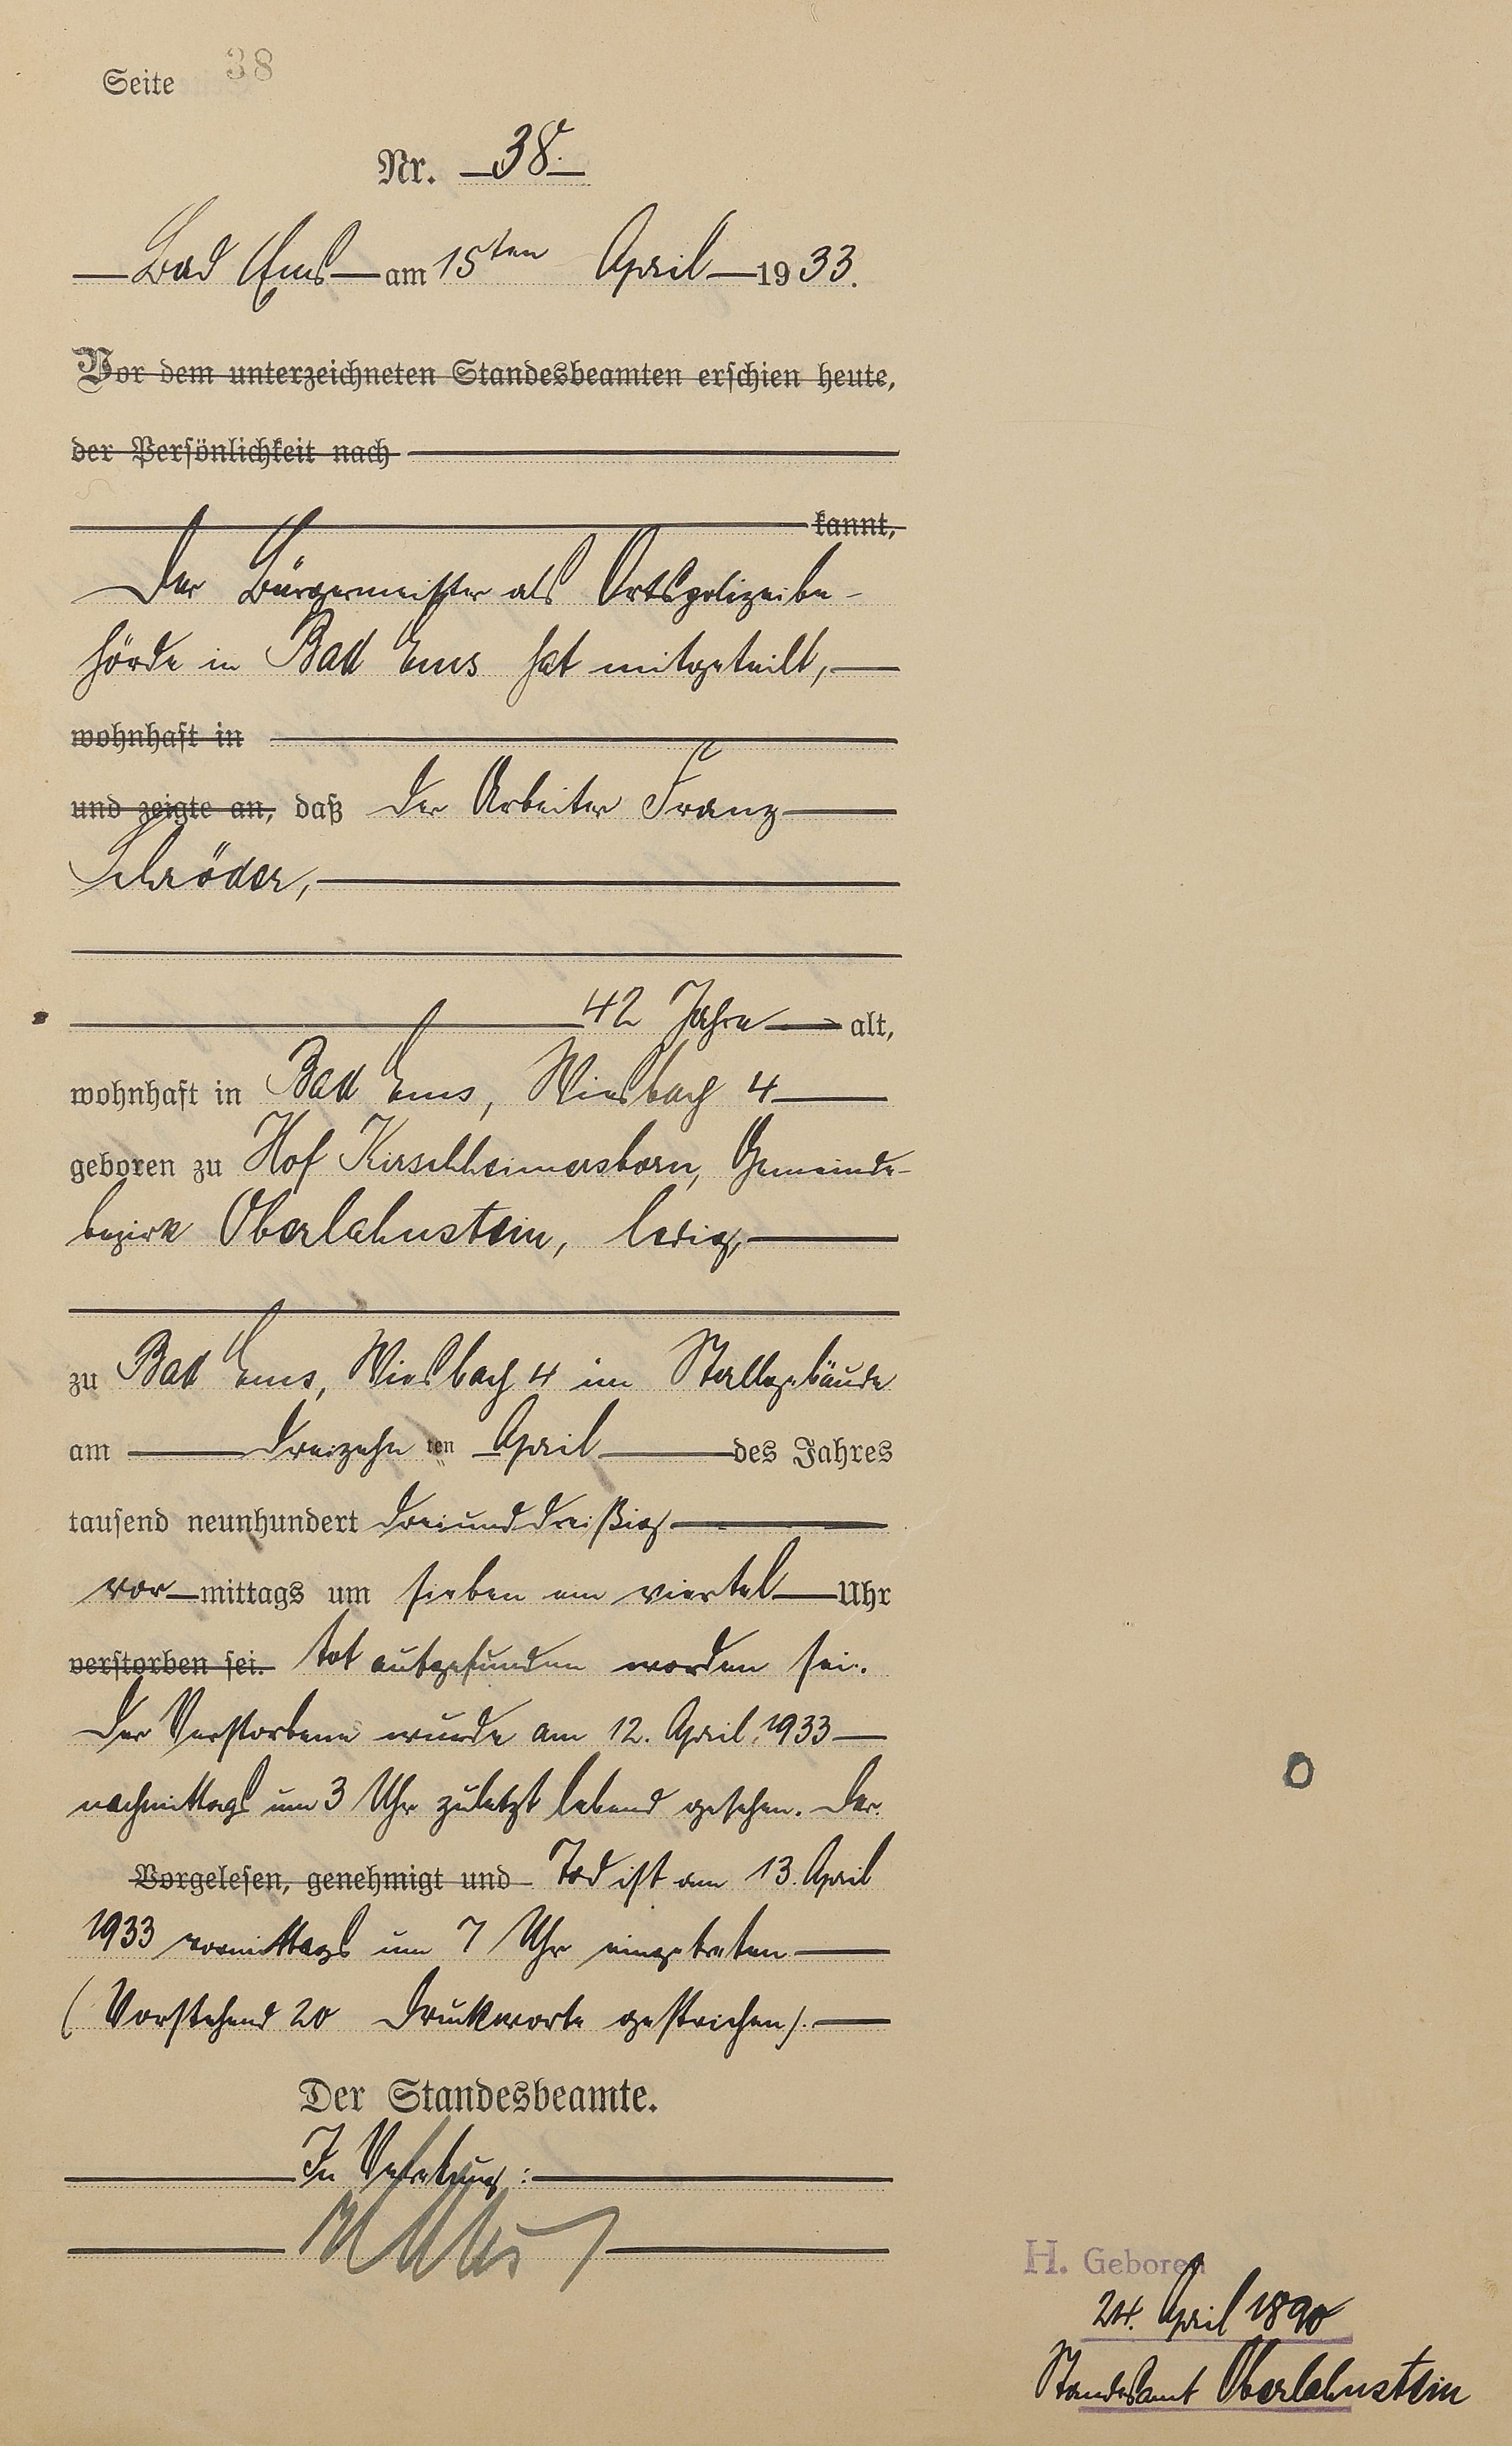 Seite 38
Nr. 38.
Bad Ems am 15ten April 1933.
Vor dem unterzeichneten Standesbeamten erschien heute,
der Persönlichkeit nach
kannt,
Der Bürgermeister als Ortspolizeibe-
hörde in Bad Ems hat mitgeteilt,
wohnhaft in
und zeigte an, daß der Arbeiter Franz
Schröder,
42 Jahre alt,
wohnhaft in Bad Ems, Wiesbach 4
geboren zu Hof Kirschheimersborn, Gemeinde-
bezirk Oberlahnstein, ledig,
zu Bad Ems, Wiesbach 4 im Stallgebäude
am dreizehnten April des Jahres
tausend neunhundert dreiunddreißig
vormittags um sieben ein viertel Uhr
verstorben sei. tot aufgefunden worden sei.
Der Verstorbene wurde am 12. April 1933
nachmittags um 3 Uhr zuletzt lebend gesehen. Der
Vorgelesen, genehmigt und Tod ist am 13. April
1933 vormittags um 7 Uhr eingetreten
(Vorstehend 20 Druckworte gestrichen).
Der Standesbeamte.
In Vertretung:
H. Geboren
24. April 1890
Standesamt Oberlahnstein